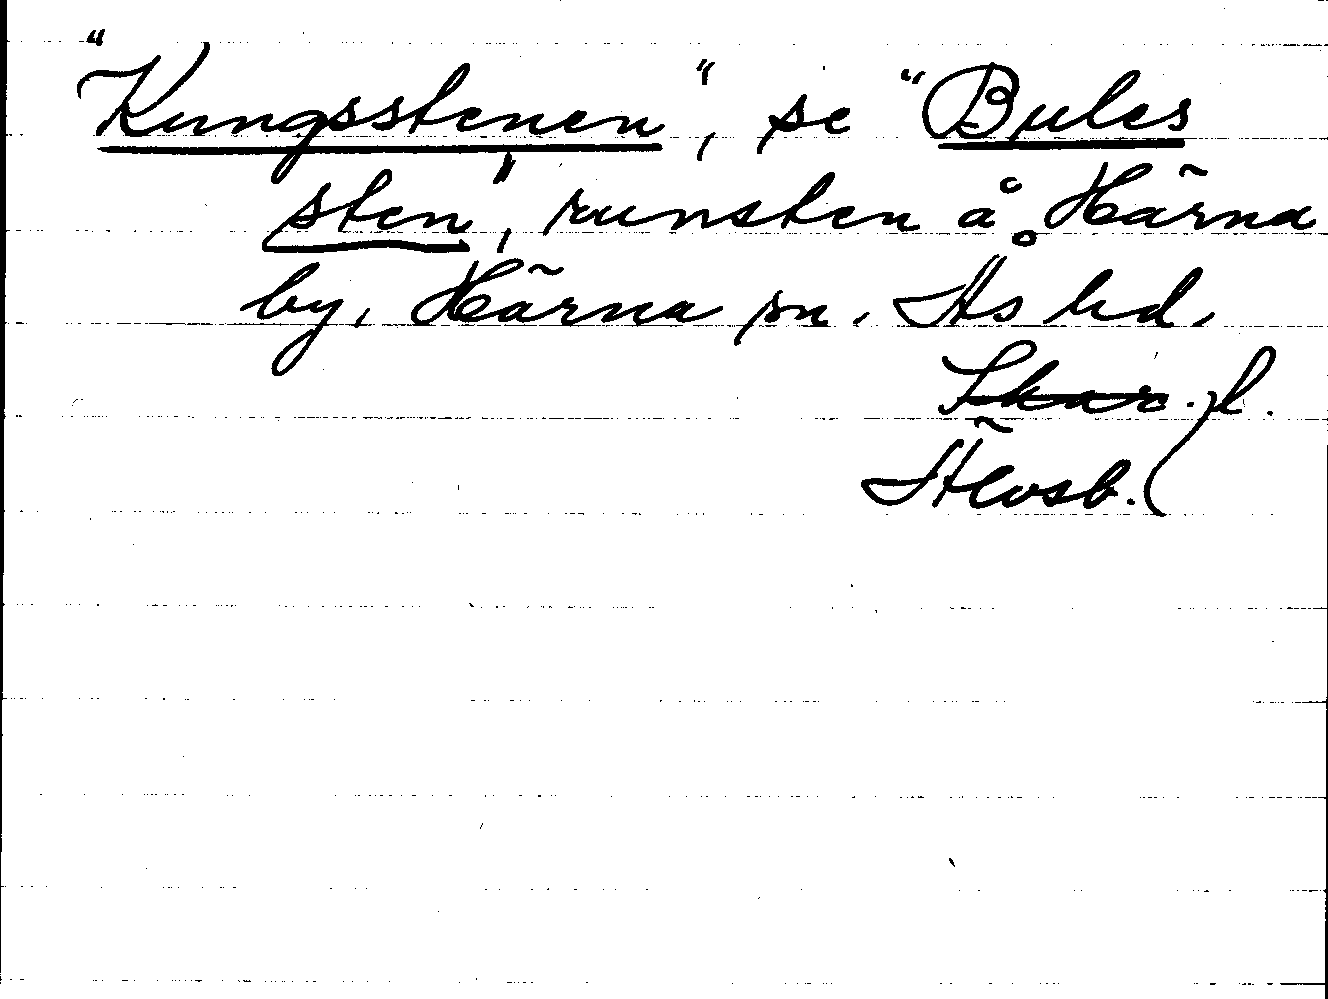 "Kungsstenen", se "Bules
sten", runsten å Härna
by, Härna sn. Ås hd.
Skar. l.
Älvsb.